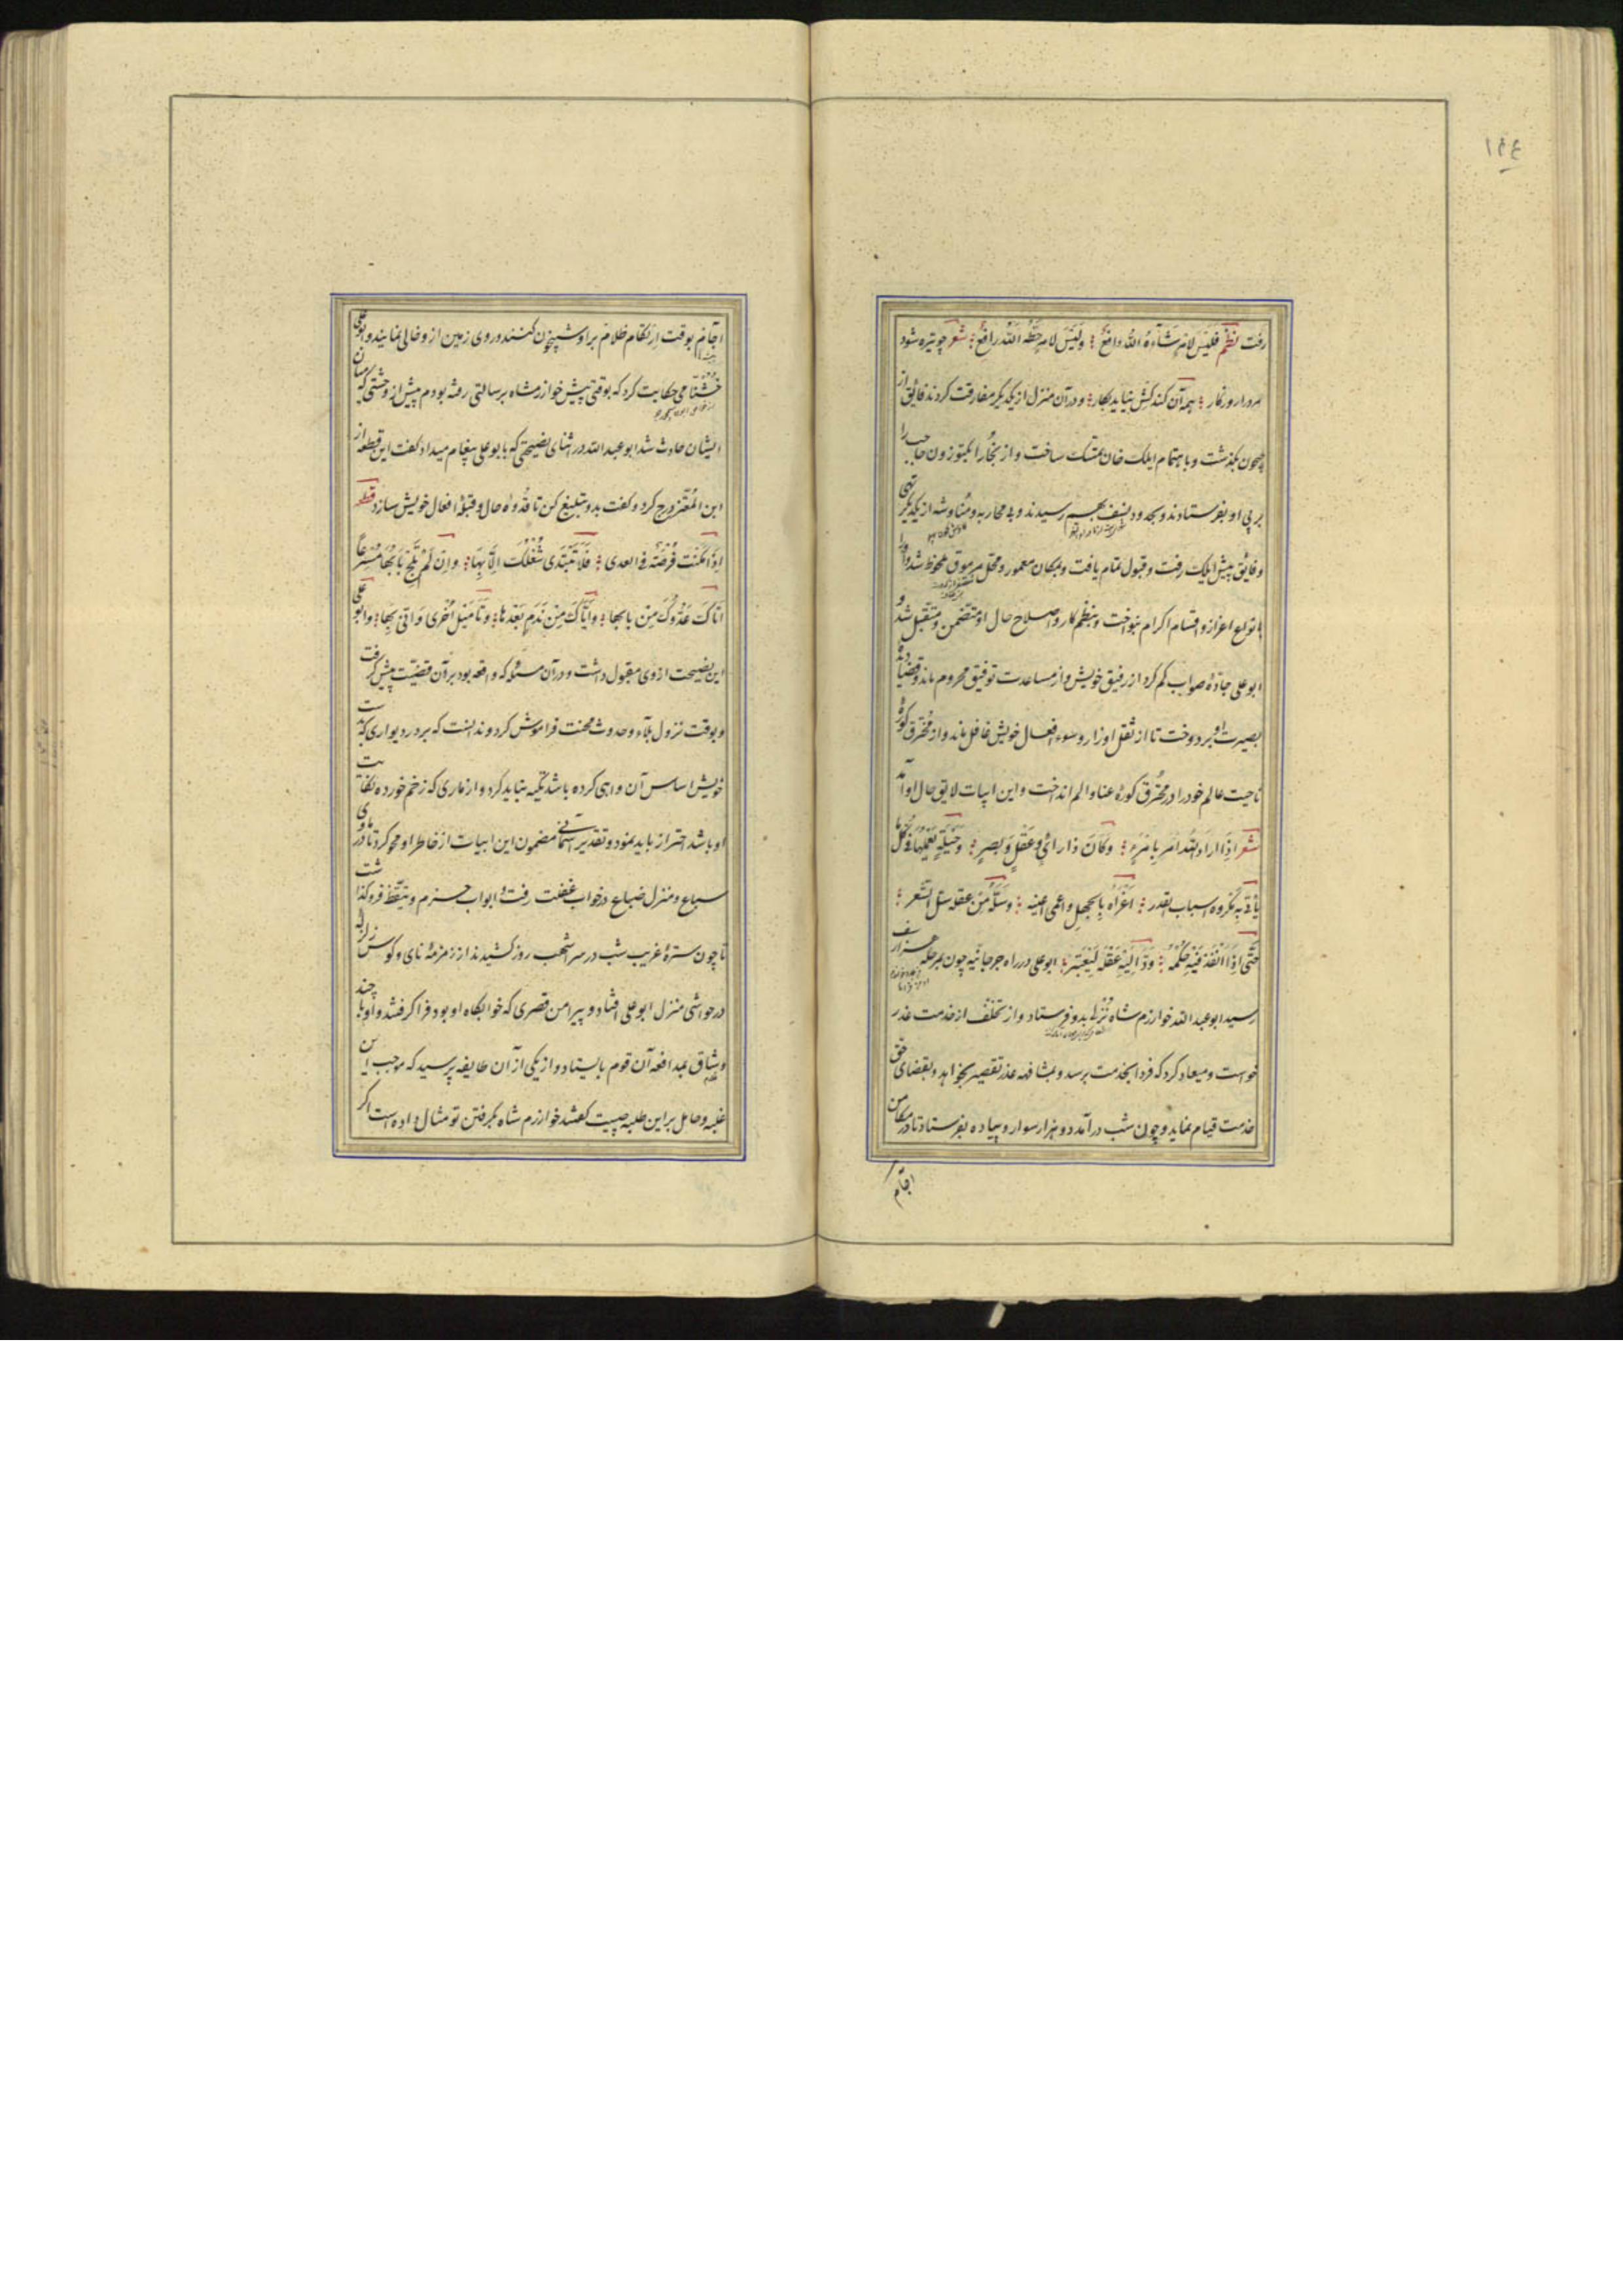 ١٢٤
رفت نظم فَلَیْسَ لِامرٍ شَآءَهُ اللهُ دافعٌ وَلَیْسَ لامرٍ حَطَّهُ اللهُ رافعٌ شعر چو تیره شود
مرد را روزگار همه آن کند کش نیاید بکار و در آن منزل از یکدیگر مفارقت کردند فایق از
جیحون بگذشت و باهتمام ایلک خان تمسک ساخت و از بخارا بکتوزون حاجب را
بر پی او بفرستادند و بحدود نسف بهم رسیدند و بی محاربه و مناوشه از یکدیگر تهی
و فایق پیش ایلک رفت و قبول تمام یافت و بمکان معمور و محل مرموق ملحوظ شد و او را
بانواع اعزاز و اقسام اکرام بنواخت و بنظم کار و اصلاح حال او متضمن و متقبل شد و
ابوعلی جادهٔ صواب گم کرد از رفیق خویش و از مساعدت توفیق محروم ماند و قضا دیدهٔ
بصیرت او بر دوخت تا از ثقل اوزار و سوء افعال خویش غافل ماند و از محترق کورهٔ
ناحیت عالم خود را در محترق کورهٔ عنا و الم انداخت و این ابیات لایق حال او آمد
شعر اِذَا ارادَ اللهُ امرً بِامْرِءٍ وَکانَ ذا رائیٍ وَعَقْلٍ وَبَصَرٍ وَحیلَةٍ یَعْمَلُها فی کلّ ما
یأتی بِه مکروه اسباب القدر اَغْراهُ بِالجهلِ واعمی عینه وَسَلَّهُ مِنْ عقله سَلَّ الشَّعر
حَتّی اِذَا اَنْفَذَ فیهِ حُکْمَهُ رَدَّ اِلَیْهِ عَقْلَهُ لِیَعْتَبِر ابوعلی در راه جرجانیه چون بمرحله هزار اسف
رسید ابوعبدالله خوارزم شاه نُزُلها بدو فرستاد و از تخلف از خدمت عذر
خواست و میعاد کرد که فردا بخدمت برسد و بمشافهه عذر تقصیر بخواهد و بقضای حق
خدمت قیام نماید و چون شب درآمد دو هزار سوار و پیاده بفرستاد تا در مکامن
آجام بوقت ارتکام ظلام بر او شبیخون کنند و روی زمین از و خالی نمایند و ابوعلی
می حکایت کرد که بوقتی پیش خوارزمشاه برسالتی رفته بودم پیش از وحشتی که میان
ایشان حادث شد ابوعبدالله در اثنای نصیحتی که بابوعلی پیغام میداد گفت این قطعه از
ابن المُعْتَز درج کرد و گفت بدو تبلیغ کن تا قُدوهٔ حال و قبلهٔ افعال خویش سازد قطعه
اِذَا اَمْکَنَت فُرْصَتهٌ فی العدی فَلا تَبْتَدی شُغْلَکَ اِلّا بِهَا وَاِن لَمْ تَلِج بَابَهَا مُسْرِعاً
اَتاکَ عَدُوُّکَ مِن بابِها وَاِیَّاکَ مِنْ نَدَمٍ بَعْدَها وَتَأمیلِ اُخْری وَاَنّی بِها و ابوعلی
این نصیحت از وی مقبول داشت و در آن مسئله که واقعه بود بر آن قضیت پیش گرفت
و بوقت نزول بلاء و حدوث محنت فراموش کرد و ندانست که بر در دیواری که بدست
خویش اساس آن واهی کرده باشد تکیه نباید کرد و از ماری که زخم خورده نکایت
او باشد احتراز باید نمود و تقدیر آسمانی مضمون این ابیات از خاطر او محو کرد تا در ماوی
سباع و منزل ضباع در خواب غفلت رفت و ابواب حزم و تیقظ فرو گذاشت
تا چون سترهٔ غربیب شب در سر اشهب روز کشیدند از زمزمهٔ نای و کوس زلزله
در حواشی منزل ابوعلی افتاد و پیرامن قصری که خوابگاه او بود فرا گرفتند و او با چند
وشاق بمدافعه آن قوم بایستاد و از یکی از آن طایفه پرسید که موجب این
غلبه و حامل بر این طلبه چیست گفتند خوارزم شاه بگرفتن تو مثال داده است اگر